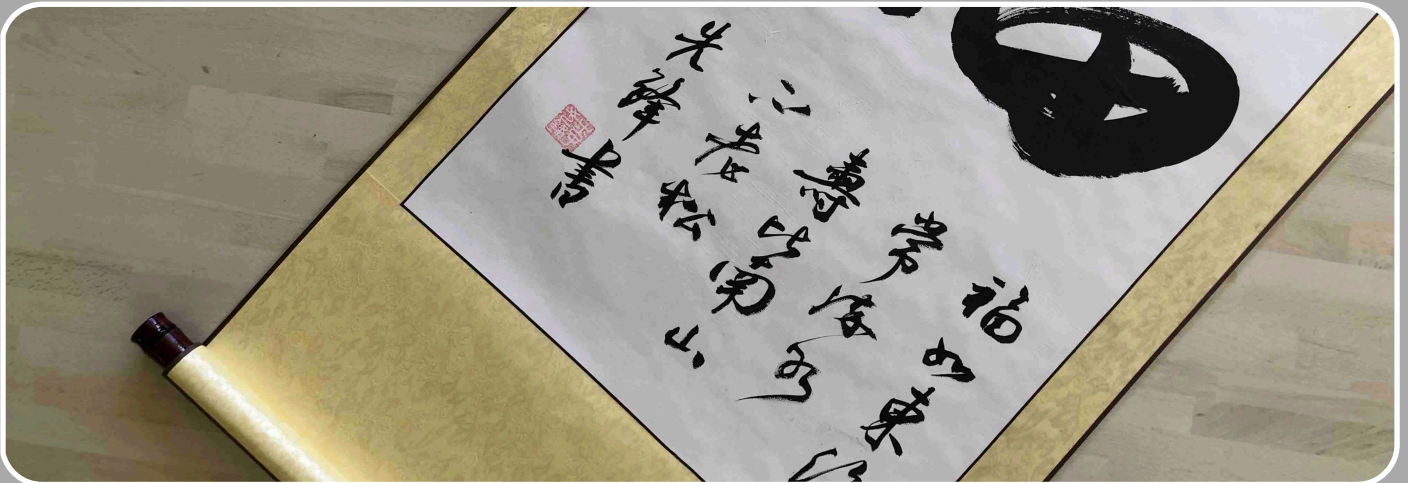 福如東海
常流水
壽比南山
不老松
先鋒書